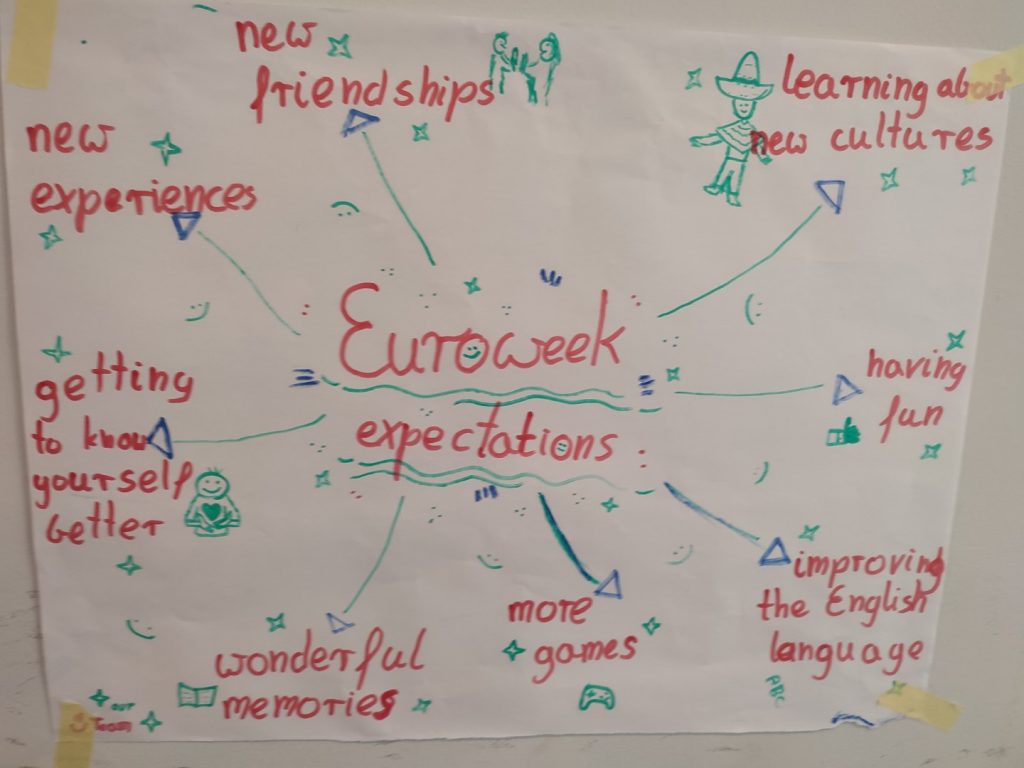 new
friendships
learning about
new cultures
new
experiences
Euroweek
expectations :
getting
to know
yourself
better
having
fun
improving
the English
language
ABC
more
games
wonderful
memories
our
Team